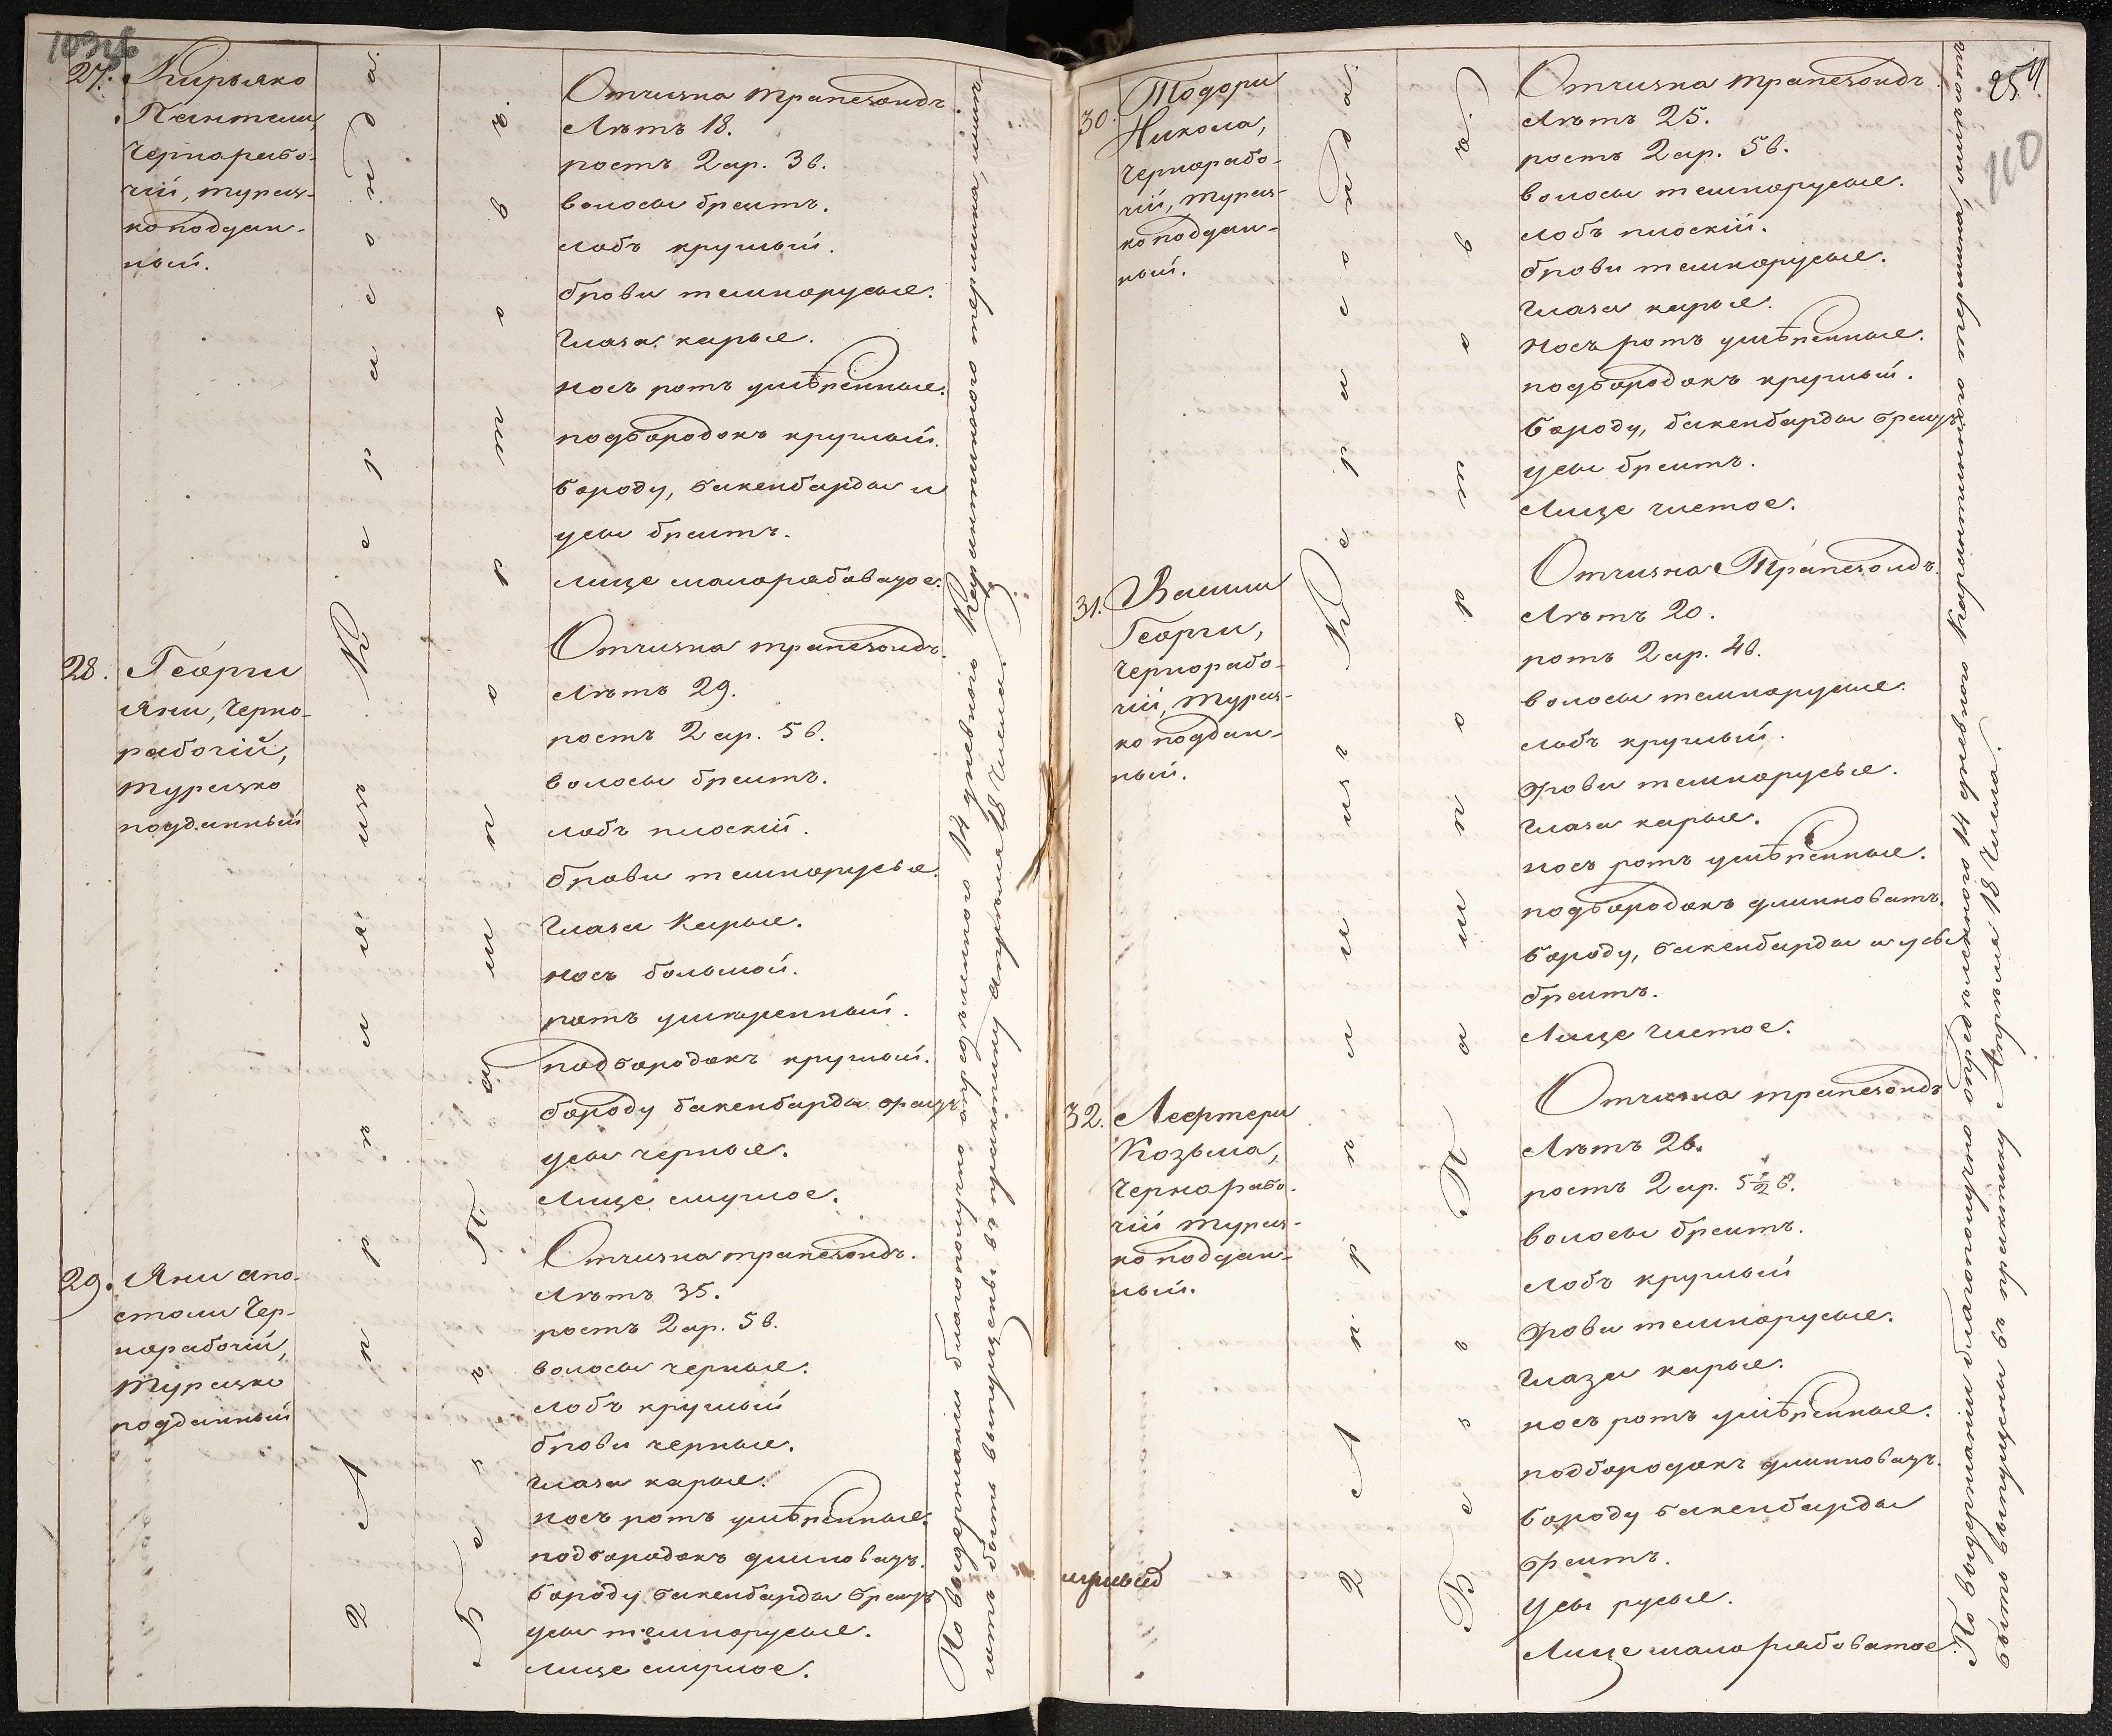 27. Кирьяко
Пантели,
Чернорабо-
чій, турец-
коподдан-
ный.
2 Апрѣля изъ Керасонда.
Безъ пашпорта.
Отчизна Трапезондъ.
Лѣтъ 18.
ростъ 2 ар. 3 в.
волосы бреитъ.
лобъ круглый.
брови темнорусые.
глаза карые.
носъ ротъ умѣренные.
подбородокъ круглый.
бороду, бакенбарды и
усы бреитъ.
лице малорябоватое.
28. Георги
Яни, Черно-
рабочій,
турецко
подданный
Отчизна трапезондъ.
Лѣтъ 29.
ростъ 2 ар. 5 в.
волосы бреитъ.
лобъ плоскій.
брови темнорусые.
Глаза Карые.
носъ большой.
ротъ умѣренный.
подбородокъ круглый.
бороду бакенбарды бреитъ
усы черные.
Лице смуглое.
29. Яни апо-
столи Чер-
норабочій,
Турецко
подданный
Отчизна трапезондъ.
Лѣтъ 35.
ростъ 2 ар. 5 в.
волосы черные.
лобъ круглый
брови черные.
глаза карые.
носъ ротъ умѣренные.
подбородокъ длиноватъ.
бороду бакенбарды бреитъ
усы темнорусые.
лице смуглое.
По выдержаніи благополучно опредѣленного 14 дневного Карантинного термина,
имѣтъ быть выпущенъ въ практику апрѣля 18 Числа.
25
110
30. Тодори
Никола,
Чернорабо-
чій, турец-
коподдан-
ный.
2 Апрѣля изъ Керасонда.
Безъ Пашпорта.
Отчизна трапезондъ
Лѣтъ 25.
ростъ 2 ар. 5 в.
волосы темнорусые.
лобъ плоскій.
брови темнорусые.
глаза карые.
носъ ротъ умѣренные.
подбородокъ круглый.
бороду, бакенбарды бреитъ
усы бреитъ.
Лице чистое.
31. Василли
Георги,
Чернорабо-
чій, Турец-
ко поддан-
ный.
Отчизна Трапезондъ.
Лѣтъ 20.
ротъ 2 ар. 4 в.
волосы темнорусые.
лобъ круглый.
брови темнорусые.
глаза карые.
носъ ротъ умѣренные.
подбородокъ длинноватъ.
бороду, бакенбарды и усы
бреитъ.
Лице чистое.
32. Лефтери
Козьма,
Чернорабо-
чій турец-
ко поддан-
ный.
Отчизна трапезондъ
Лѣтъ 26.
ростъ 2 ар. 5 ½ в.
волосы бреитъ.
лобъ круглый
брови темнорусые.
глаза карые.
носъ ротъ умѣренные.
подбородокъ длинноватъ.
бороду бакенбарды
бреитъ.
усы русые.
Лице малорябоватое
По выдержаніи благополучно опредѣленного 14 дневного Карантинного термина,
быть выпущены въ практику Апрѣля 18 Числа.